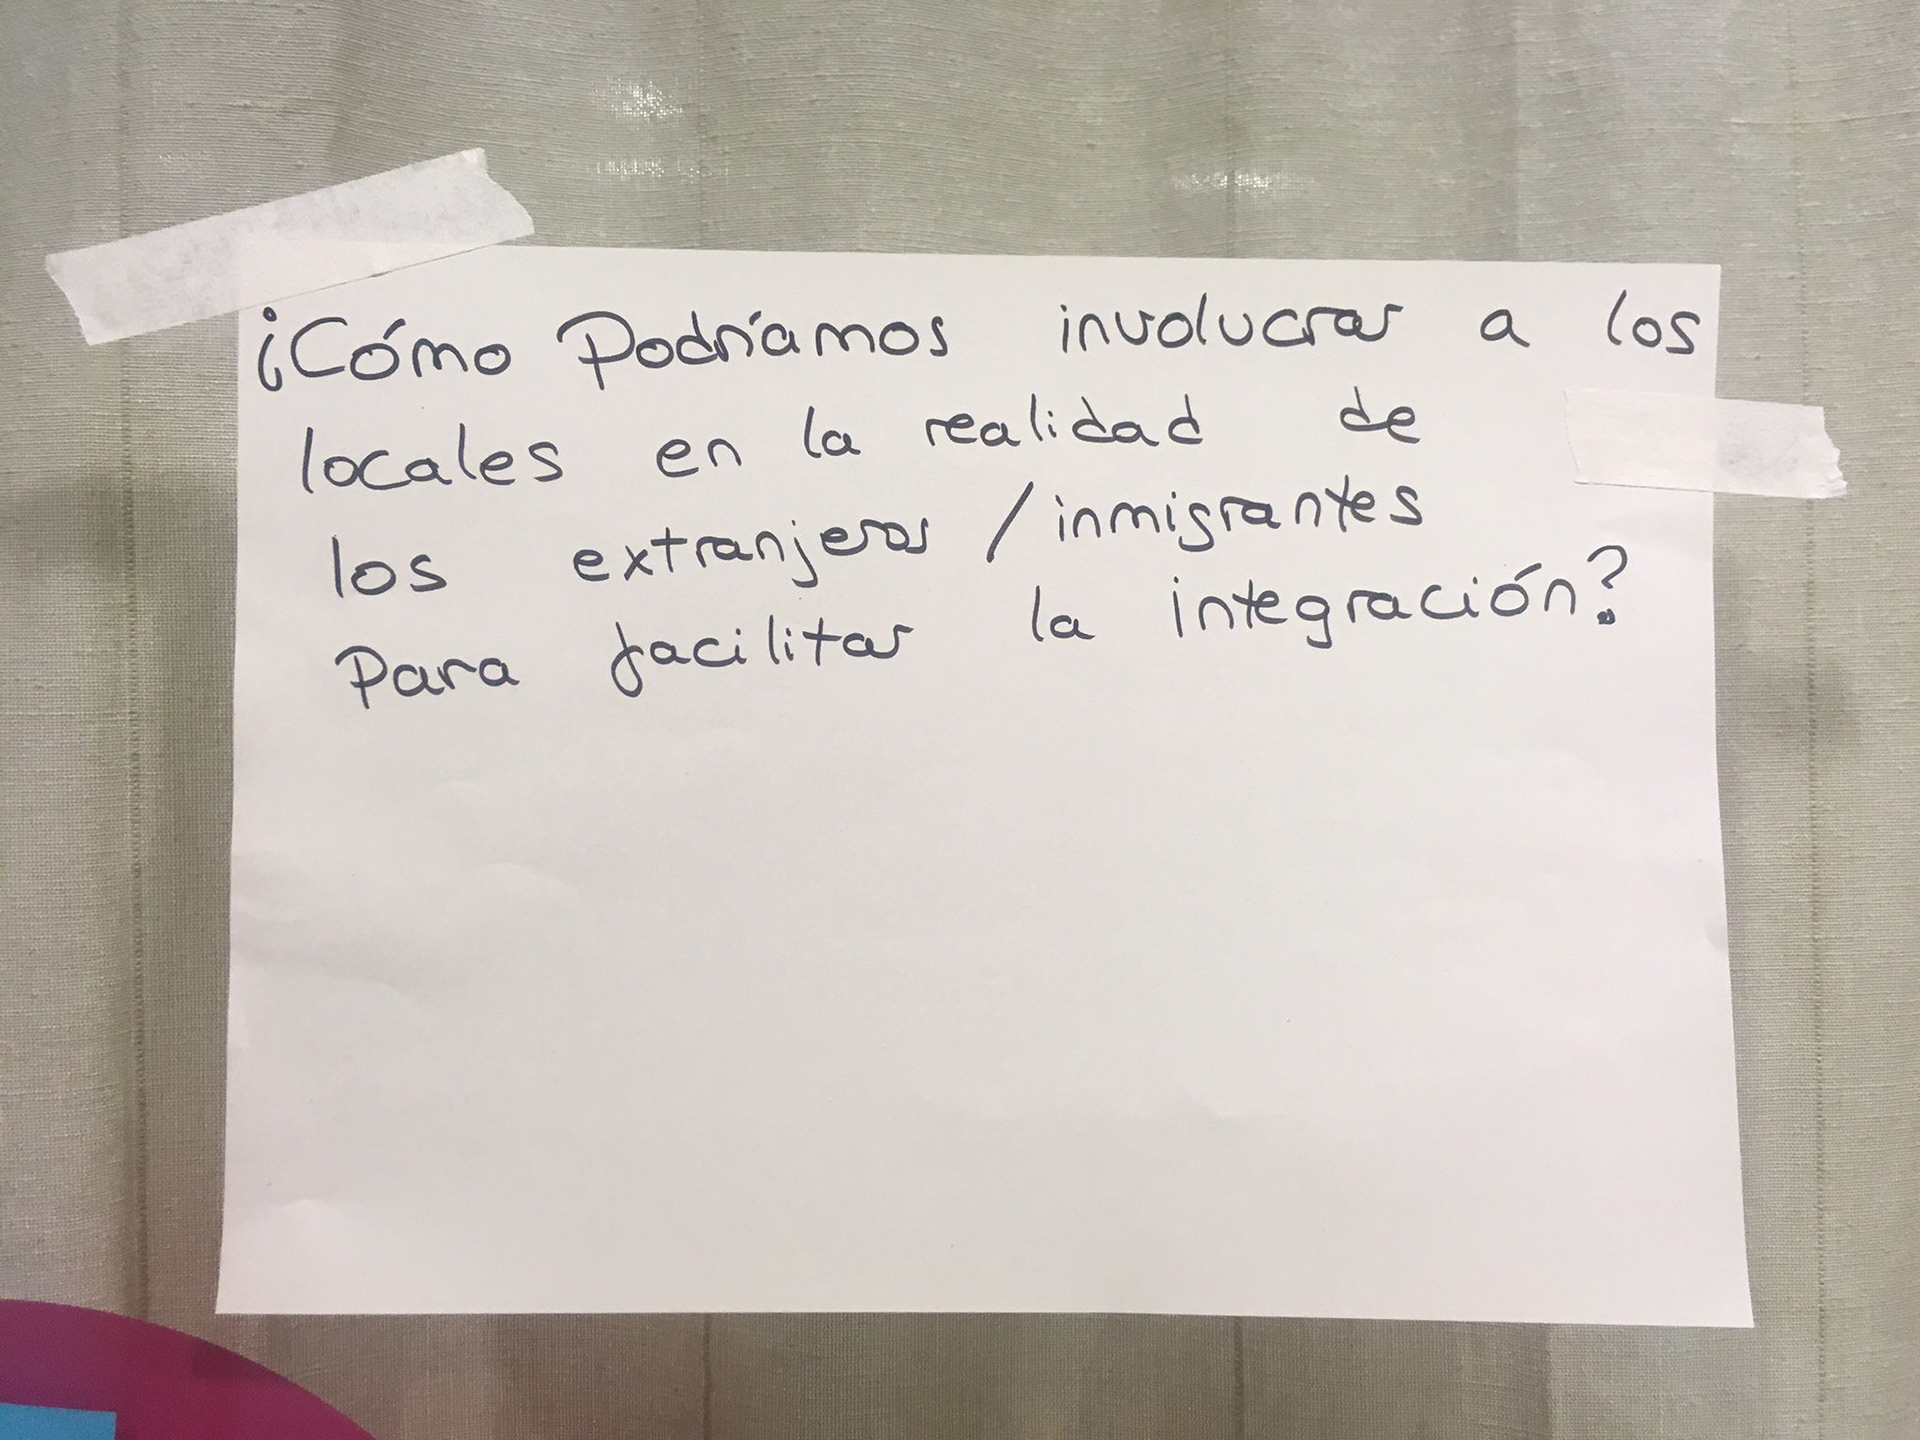 ¿Cómo Podríamos involucrar a los
locales en la realidad de
los extranjeros / inmigrantes
Para facilitar la integración?